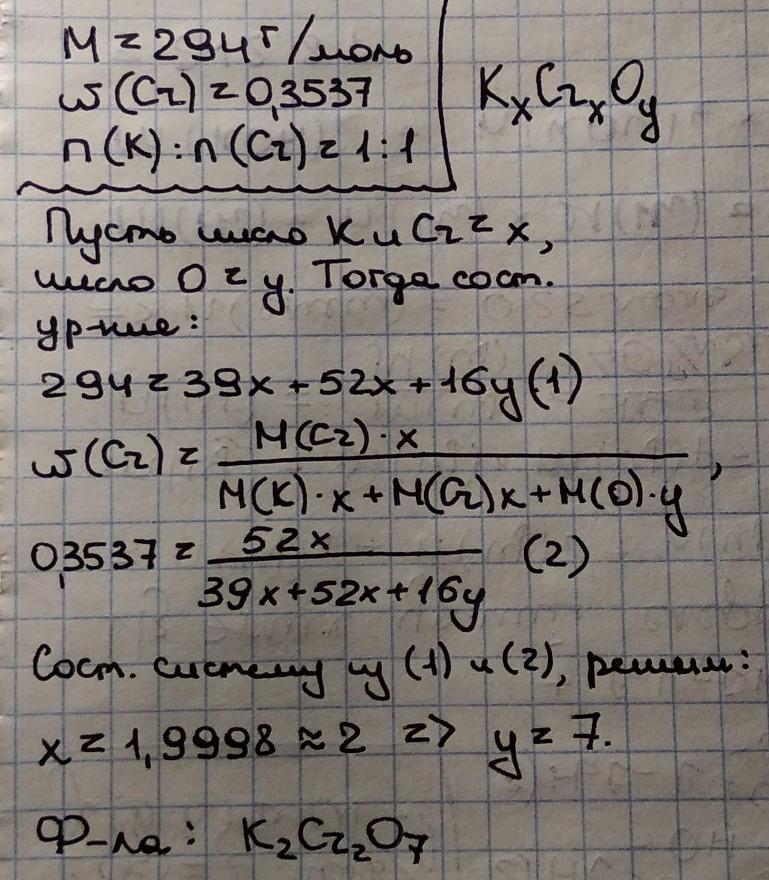 M = 294 г/моль
ω(Cr) = 0,3537
n(K):n(Cr) = 1:1
KₓCrₓOᵧ
Пусть число K и Cr = x,
число O = y. Тогда сост.
ур-ние:
294 = 39x + 52x + 16y (1)
ω(Cr) = M(Cr)·x / M(K)·x + M(Cr)x + M(O)·y ,
0,3537 = 52x / 39x+52x+16y (2)
Сост. систему из (1) и (2), решим:
x = 1,9998 ≈ 2 => y = 7.
Ф-ла: K₂Cr₂O₇